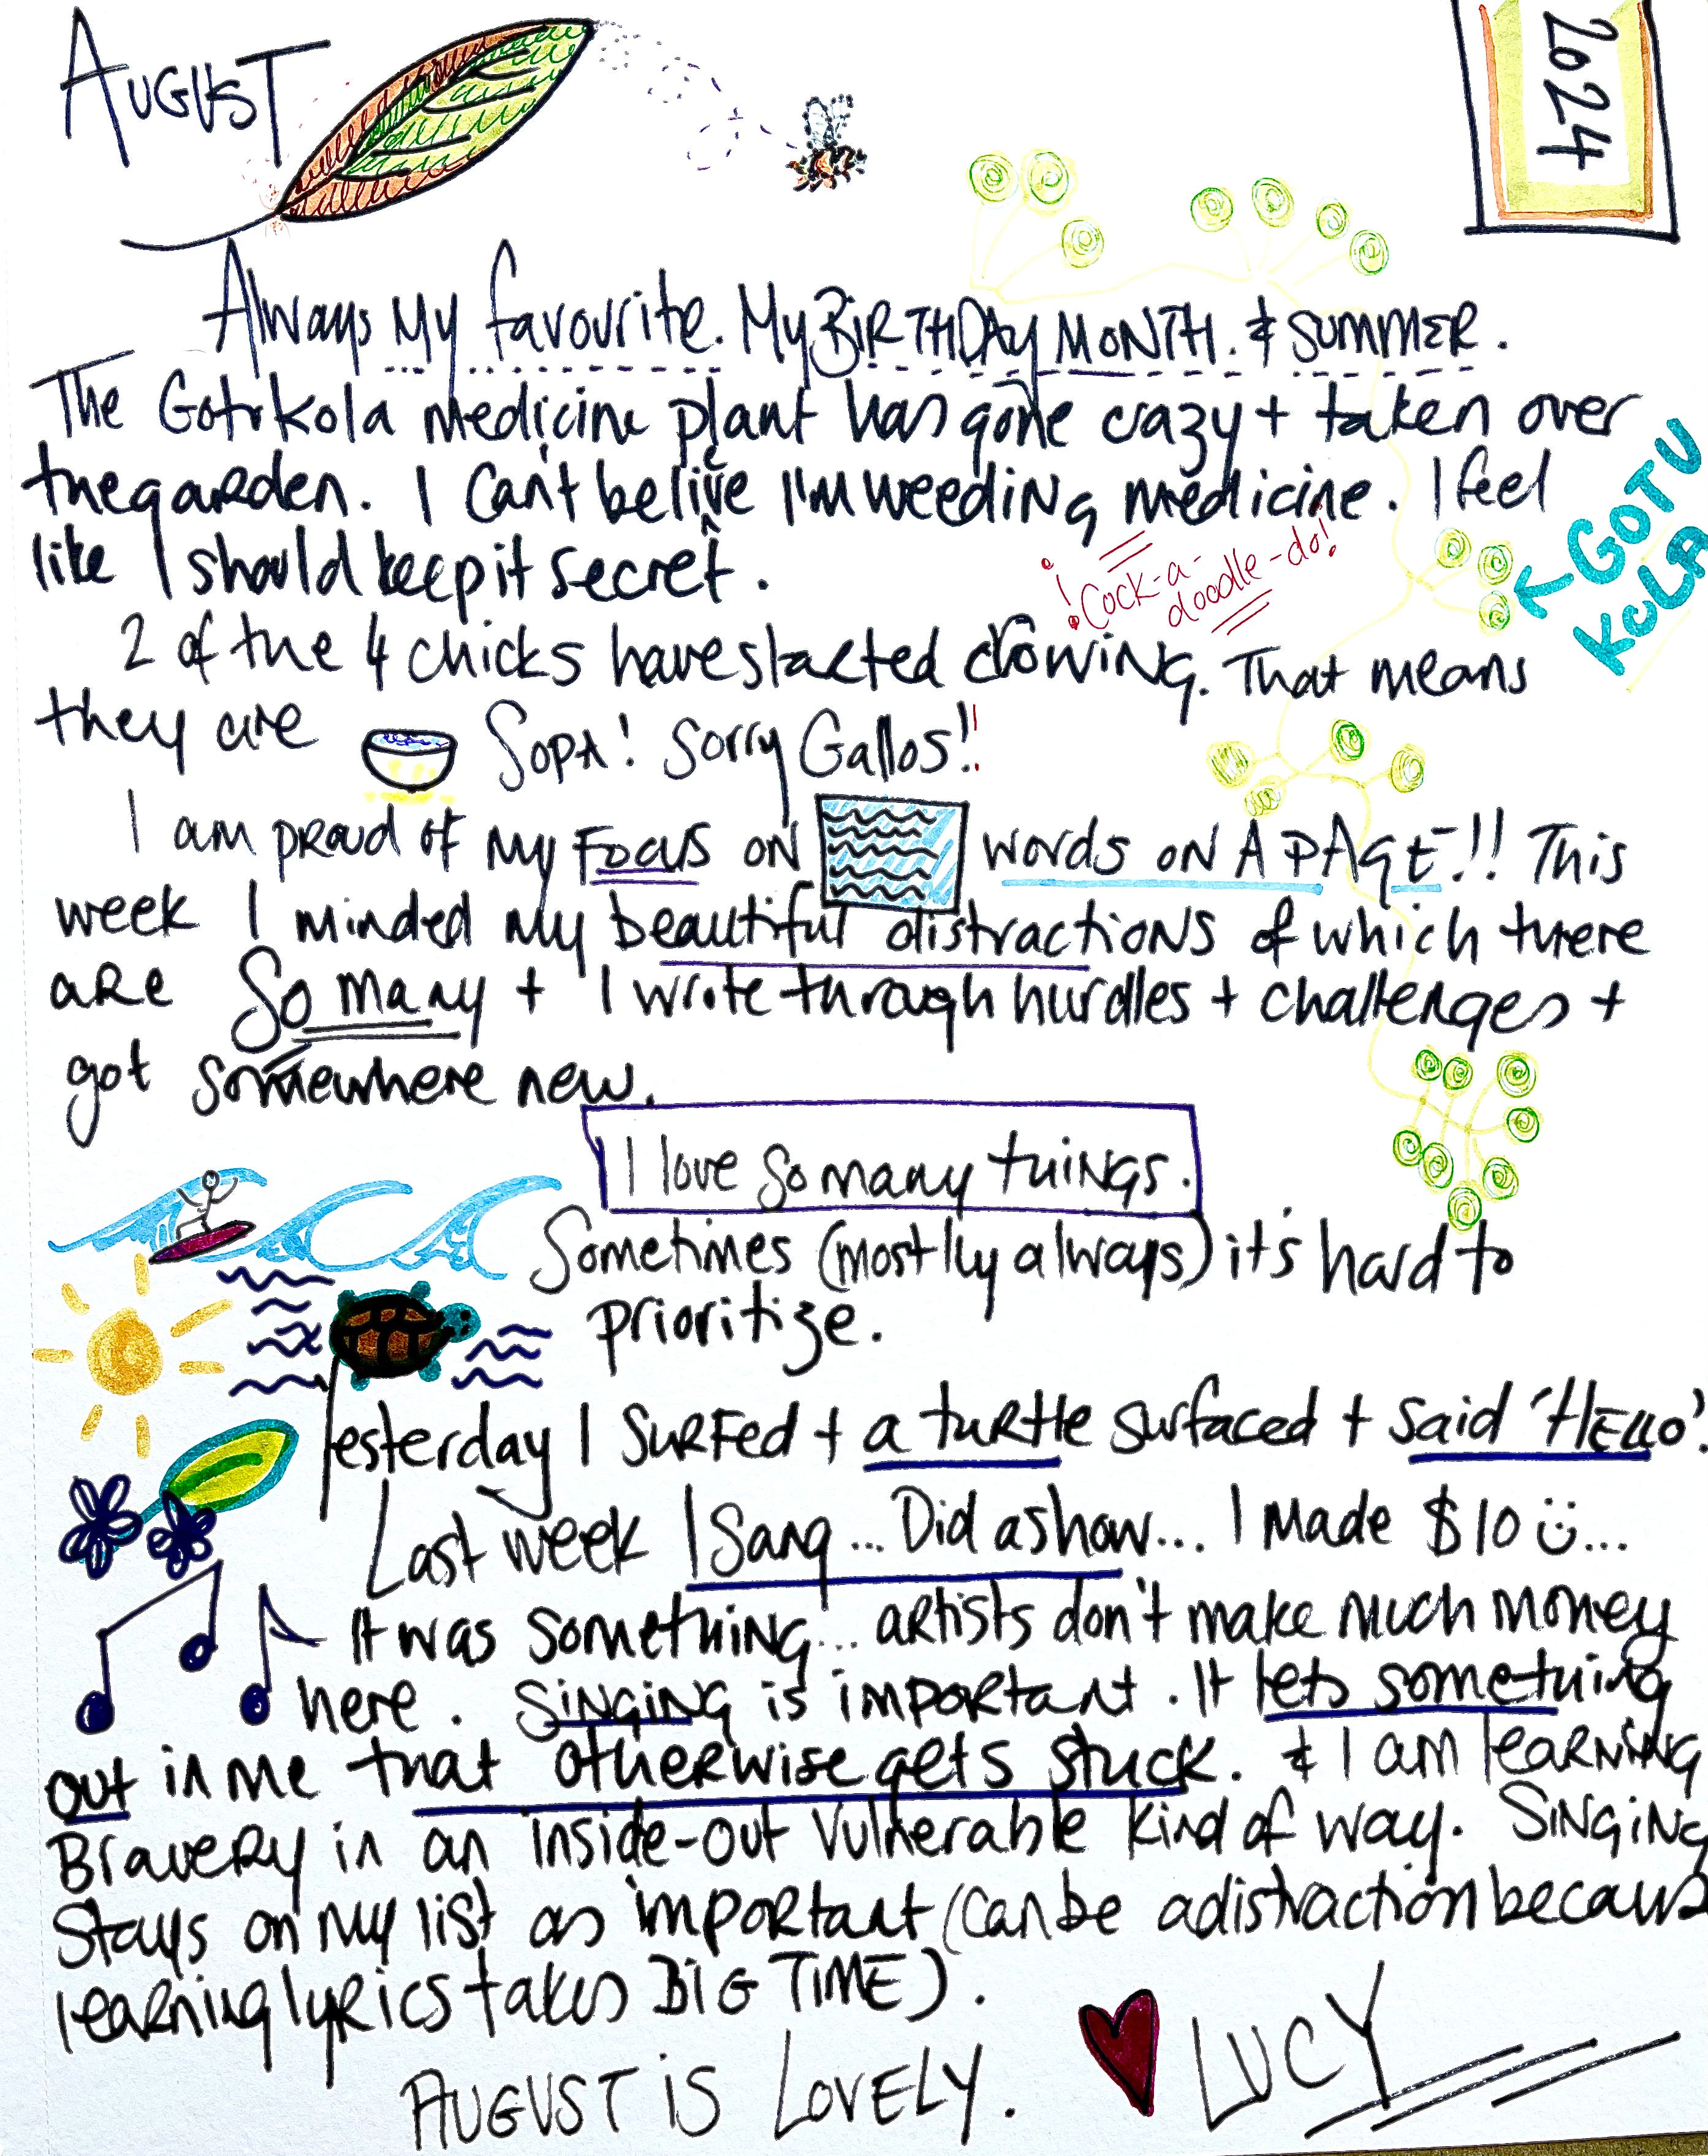 AUGUST
2024
Always My favourite. My BIRTHDAY MONTH. & SUMMER.
The Gotukola medicine plant has gone crazy + taken over
the garden. I Can't belive I'm weeding medicine. I feel
like I should keep it secret.
GOTU
KOLA
! Cock-a-
doodle-do!
2 of the 4 chicks have started crowing. That means
they are SOPA! Sorry Gallos!!
I am proud of my Focus ON words ON A PAGE!! This
week I minded my beautiful distractions of which there
are So many + I wrote through hurdles + challenges +
got somewhere new.
I love so many things.
Sometimes (mostly always) it's hard to
prioritize.
Yesterday I SURFed + a turtle surfaced + said 'HELLO'.
Last week I Sang... Did a show... I Made $10 ...
It was something... artists don't make much money
here. Singing is important. It lets something
out in me that otherwise gets stuck. & I am learning
Bravery in an inside-out vulnerable kind of way. Singing
Stays on my list as important (can be a distraction because
learning lyrics takes BIG TIME).
AUGUST is LOVELY. LUCY